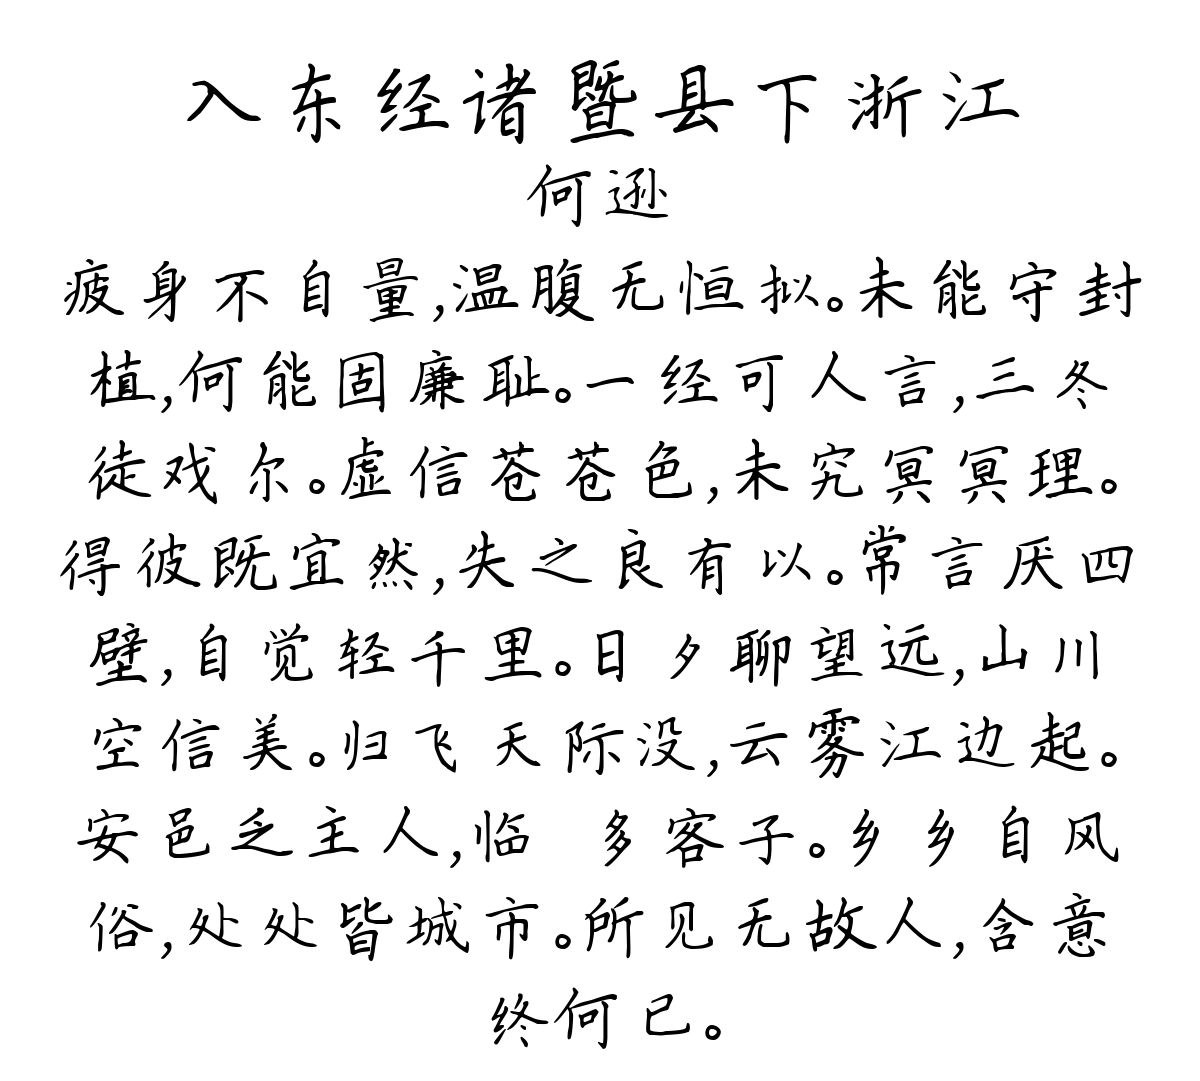 入东经诸暨县下浙江
何逊
疲身不自量,温腹无恒拟。未能守封
植,何能固廉耻。一经可人言,三冬
徒戏尔。虚信苍苍色,未究冥冥理。
得彼既宜然,失之良有以。常言厌四
壁,自觉轻千里。日夕聊望远,山川
空信美。归飞天际没,云雾江边起。
安邑乏主人,临 多客子。乡乡自风
俗,处处皆城市。所见无故人,含意
终何已。